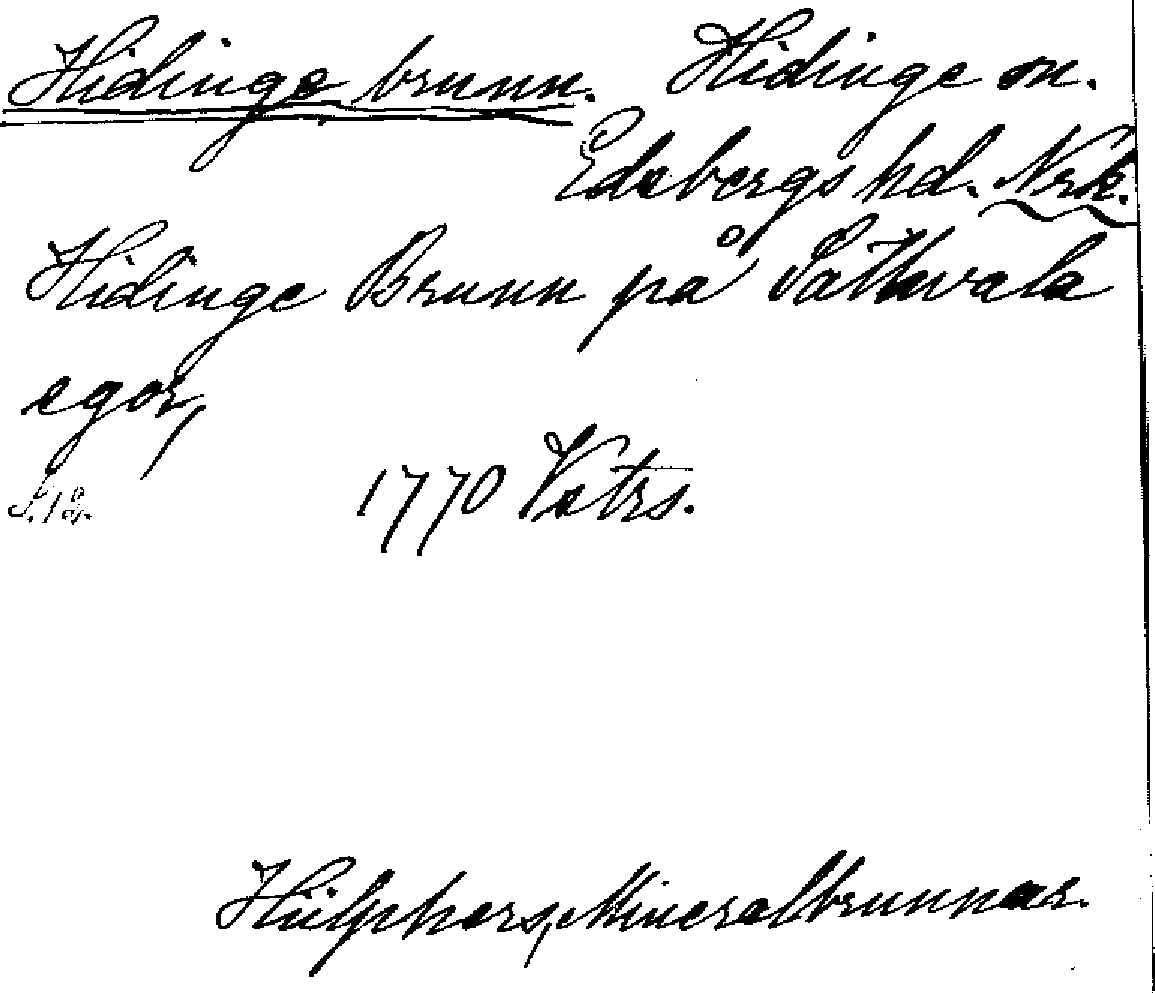 Hidinge brunn. Hidinge sn.
Edsbergs hd. Nrk.
Hidinge Brunn på Sathvala
egor,
S. 12. 1770 Vstrs.
Hülphers, Mineralbrunnar.